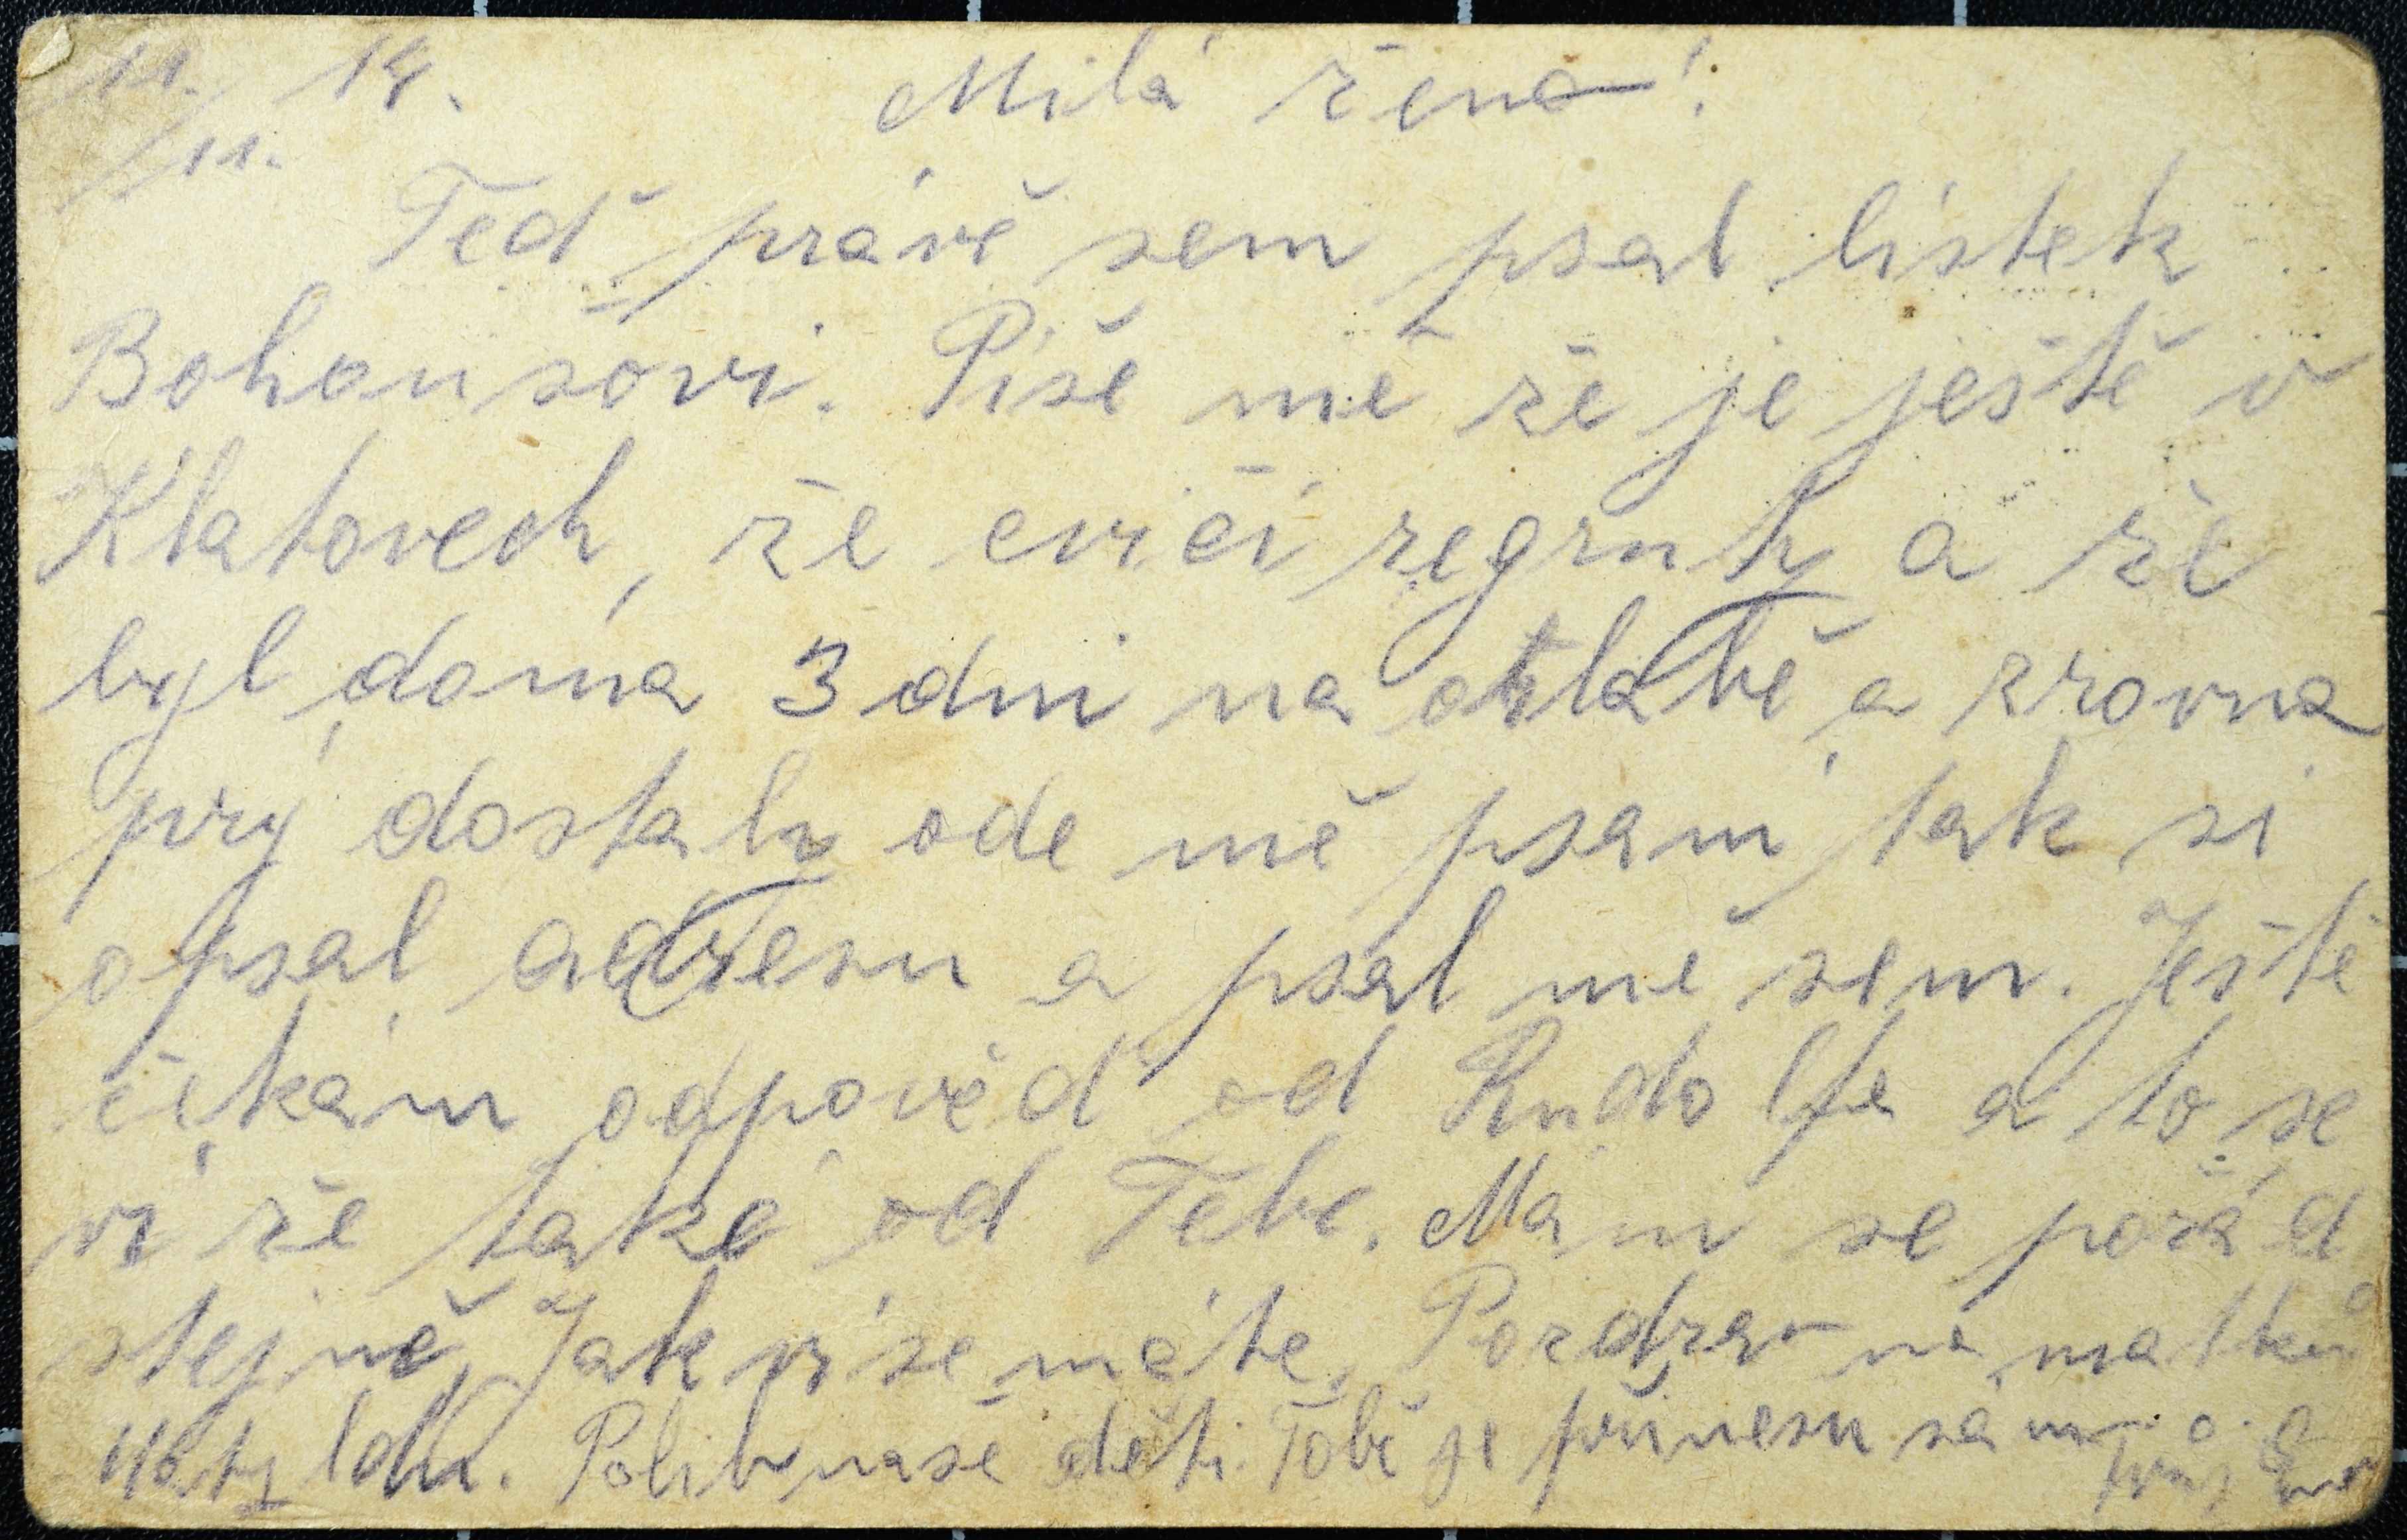 11. 18. Milá ženo!
11.
Teď právě sem psal lístek
Bohoušovi. Píše mě že je ještě v
Klatovech, že cvičí regruty a že
byl doma 3 dni na a zrovna
prý dostaly ode mě psaní tak si
opsal adresu a psal mě sem. Ještě
čekám odpověď od Rudolfa a to se
ví že také od Tebe. Mám se pořád
stejně, Jak vy se máte. Pozdrav na matku
Polib naše děti. Tobě je přinesu sám
Tvůj